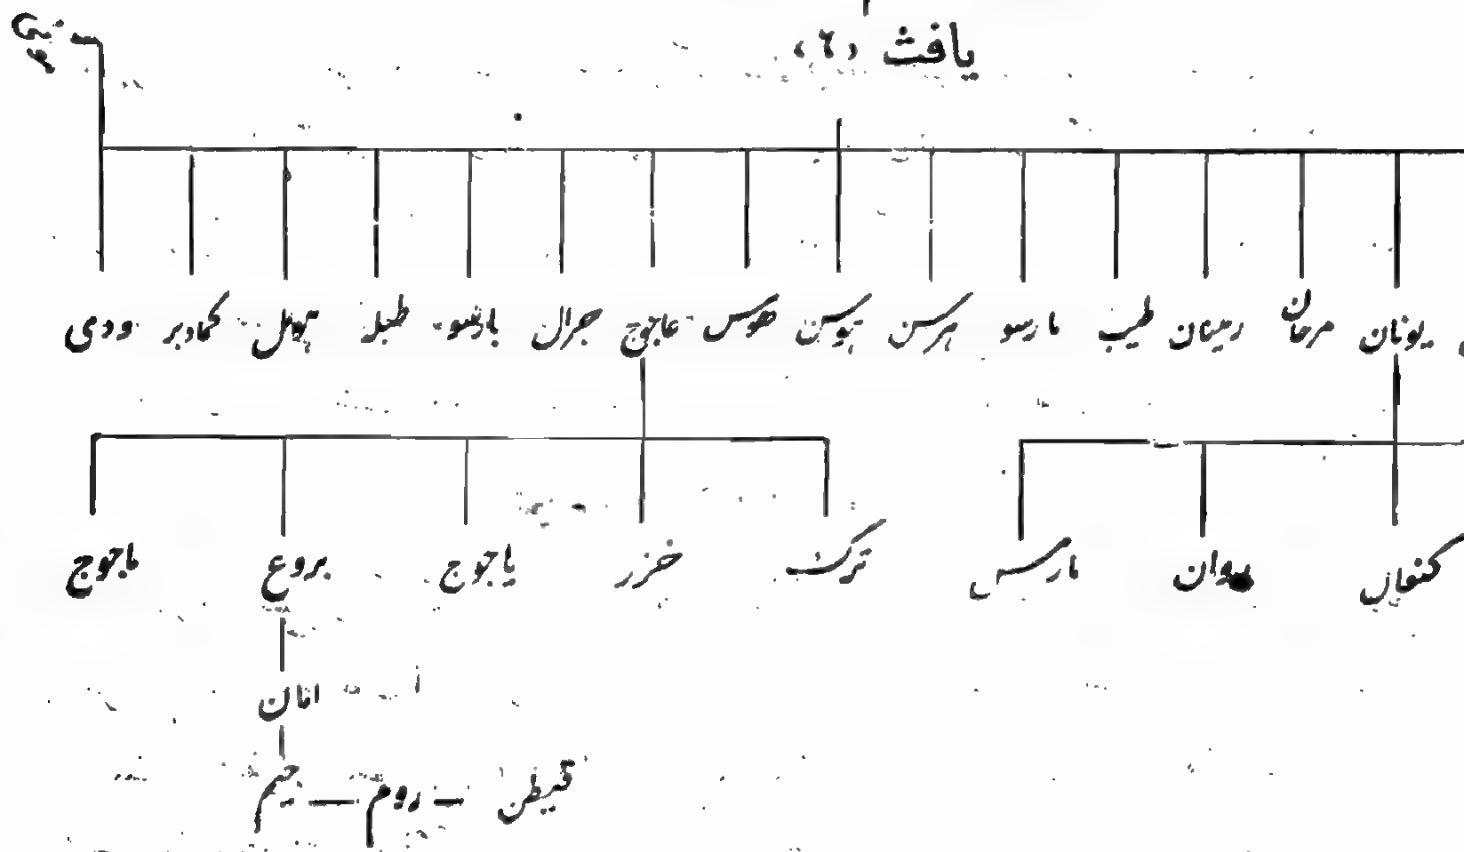 یافث (٢)
یونان مرحان رمینان طیب مارسو ہرسن ہیوسن ھوس عاجوج جرال بارسو طبلہ کمادبر ودی
کنعان یوان مارس ترک خزر یاجوج بروع ماجوج
امان
قیطن روم جیم